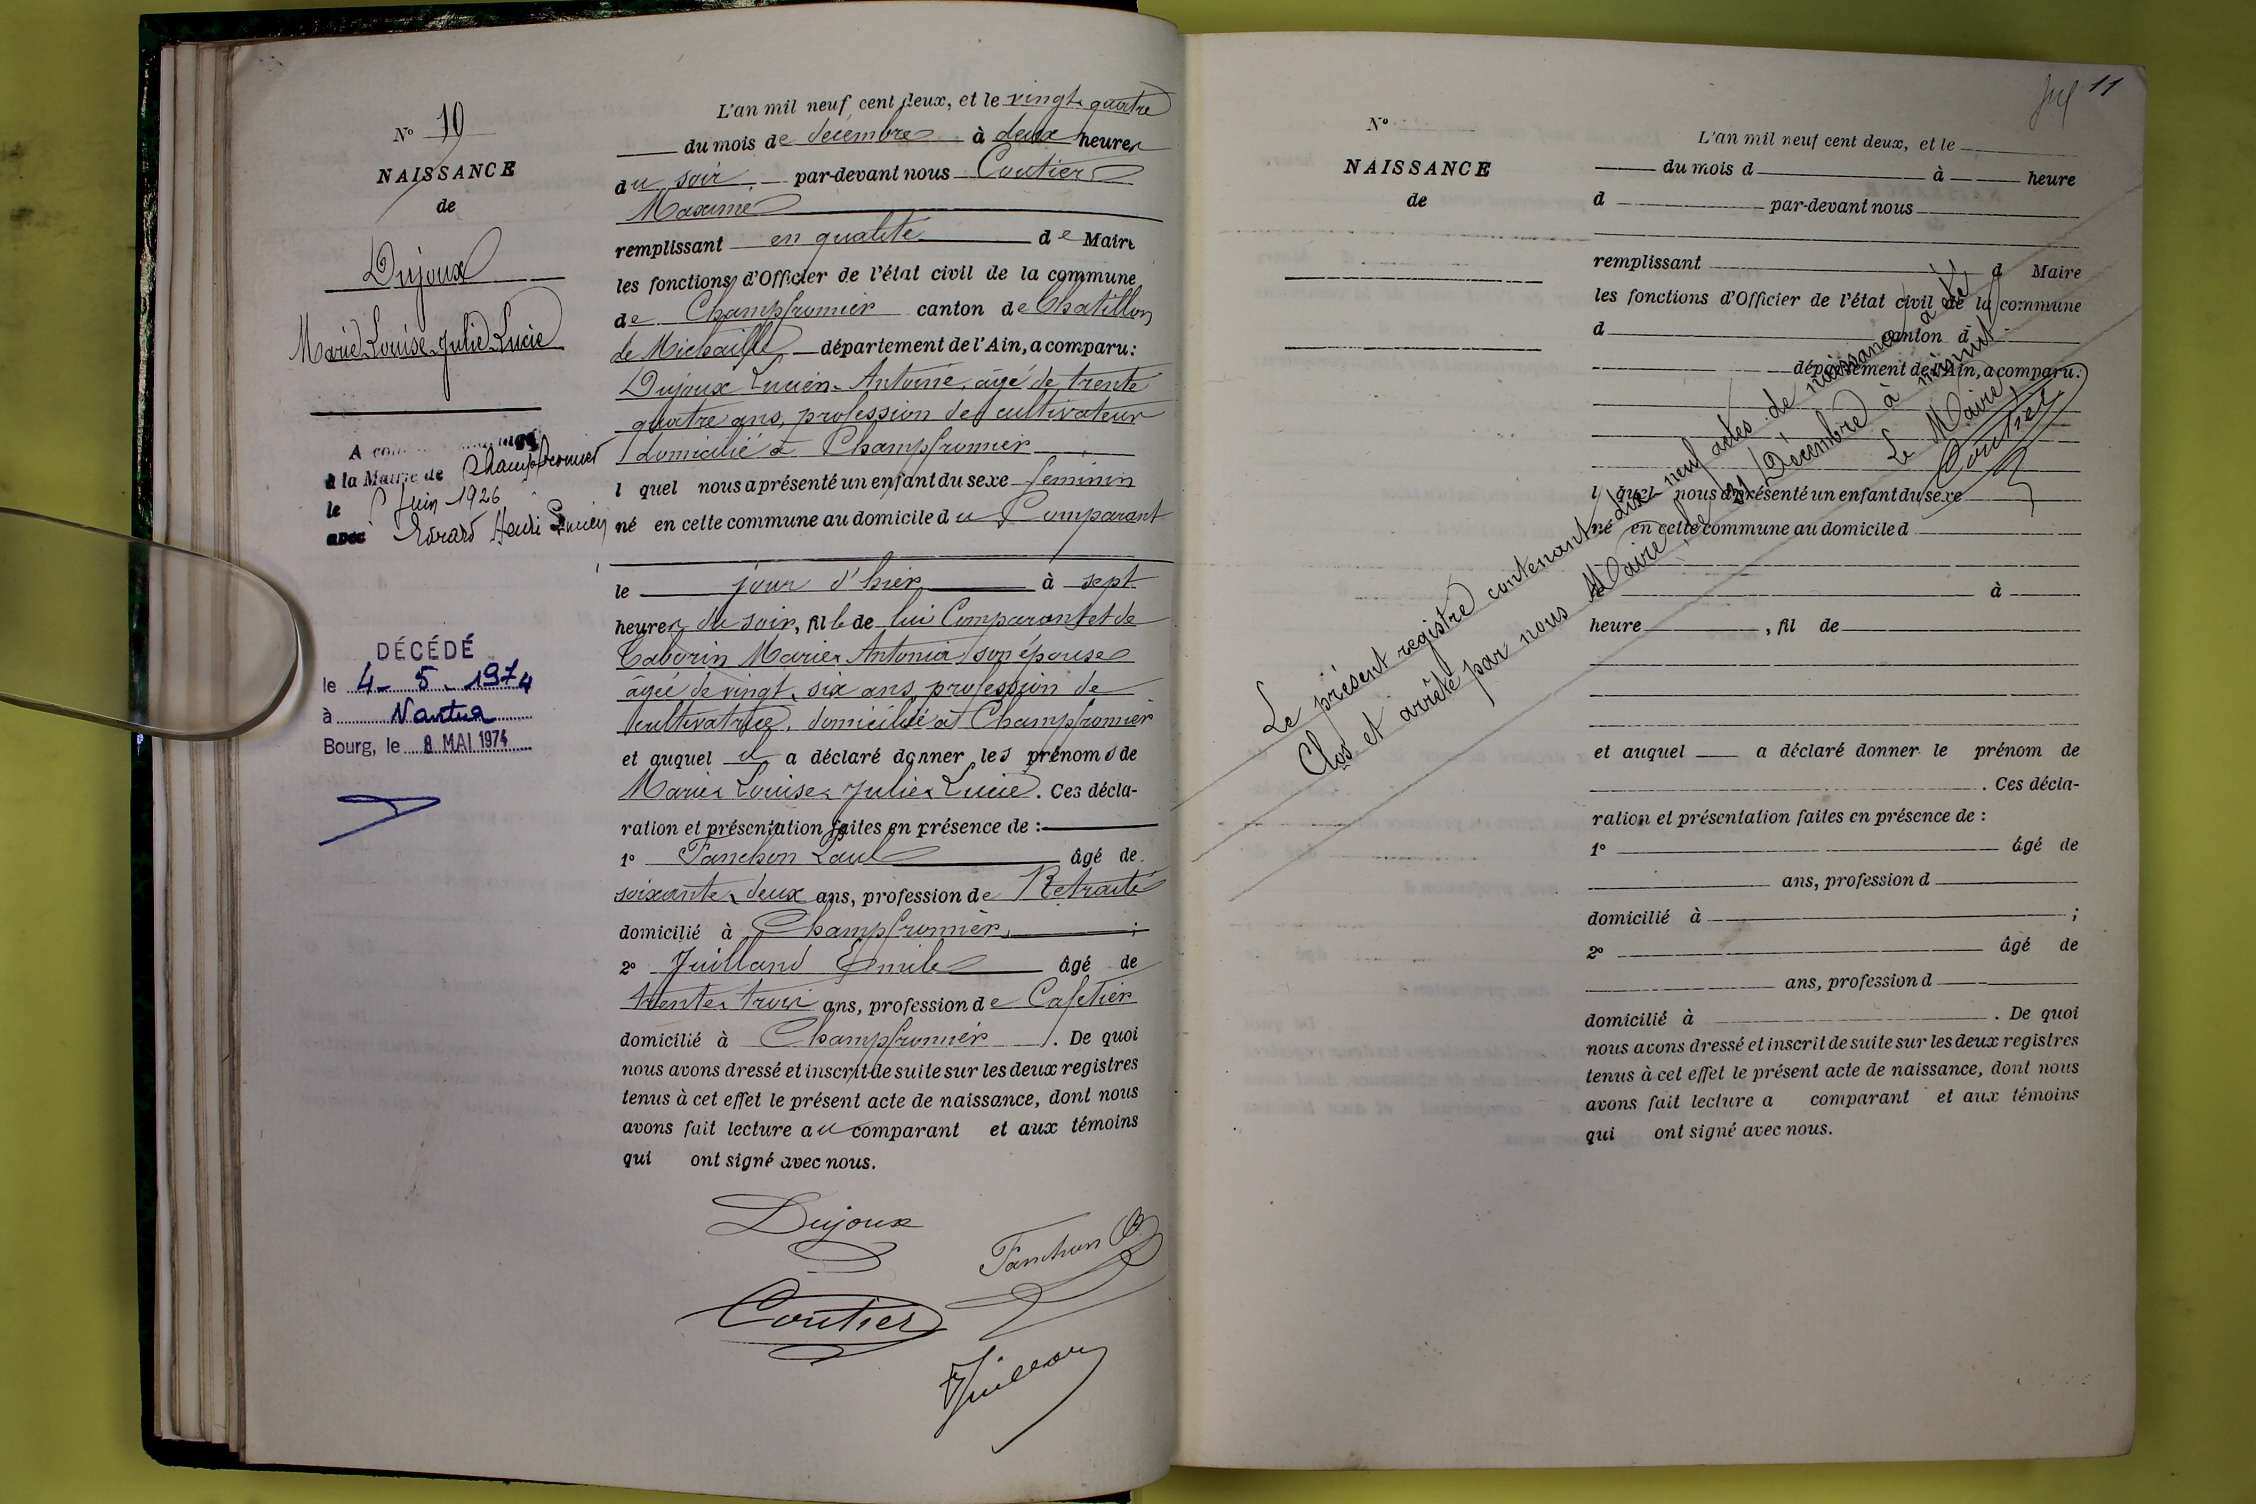 N° 19
NAISSANCE
de
Dujoux
Marie Louise Julie Lucie
A
à la Mairie de Champfromier
le Juin 1926
avec Evrard Henri Lucien
DÉCÉDÉ
le 4 - 5 - 1974
à Nantua
Bourg, le 8 MAI 1974
L'an mil neuf cent deux, et le vingt-quatre
du mois de décembre à deux heures
du soir, par-devant nous Coutier
Maxime
remplissant en qualité de Maire
les fonctions d'Officier de l'état civil de la commune
de Champfromier canton de Chatillon
de Michaille, département de l'Ain, a comparu:
Dujoux Lucien-Antoine, âgé de trente
quatre ans, profession de cultivateur
domicilié à Champfromier
l quel nous a présenté un enfant du sexe féminin
né en cette commune au domicile du Comparant
le jour d'hier à sept
heures du soir, fille de lui Comparant et de
Tabörin Marie-Antonia son épouse
âgée de vingt-six ans, profession de
cultivatrice, domiciliée à Champfromier
et auquel il a déclaré donner les prénoms de
Marie-Louise-Julie-Lucie. Ces décla-
ration et présentation faites en présence de :
1° Fanchon Paul âgé de
soixante-deux ans, profession de Retraité
domicilié à Champfromier ;
2° Juilland Emile âgé de
trente-trois ans, profession de Cafetier
domicilié à Champfromier. De quoi
nous avons dressé et inscrit de suite sur les deux registres
tenus à cet effet le présent acte de naissance, dont nous
avons fait lecture au comparant et aux témoins
qui ont signé avec nous.
Dujoux
Fanchon
Coutier
Juilland
11
N°
NAISSANCE
de
L'an mil neuf cent deux, et le
du mois d à heure
d par-devant nous
remplissant d Maire
les fonctions d'Officier de l'état civil de la commune
d canton d
département de l'Ain, a comparu:
l quel nous a présenté un enfant du sexe
né en cette commune au domicile d
le à
heure , fil de
et auquel a déclaré donner le prénom de
. Ces décla-
ration et présentation faites en présence de :
1° âgé de
ans, profession d
domicilié à ;
2° âgé de
ans, profession d
domicilié à . De quoi
nous avons dressé et inscrit de suite sur les deux registres
tenus à cet effet le présent acte de naissance, dont nous
avons fait lecture a comparant et aux témoins
qui ont signé avec nous.
Le présent registre contenant dix-neuf actes de naissance a été
Clos et arrêté par nous Maire, le 31 Décembre à minuit.
Le Maire,
Coutier